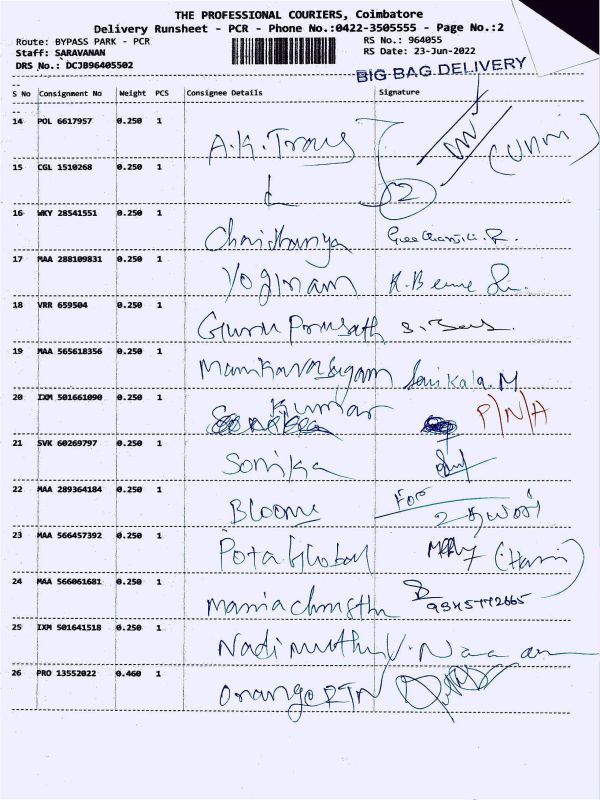 THE PROFESSIONAL COURIERS, Coimbatore
Delivery Runsheet - PCR - Phone No.:0422-3505555 - Page No.:2
Route: BYPASS PARK - PCR RS No.: 964055
Staff: SARAVANAN RS Date: 23-Jun-2022
DRS No.: DCJB96405502
BIG BAG DELIVERY
S No Consignment No Weight PCS Consignee Details Signature
14 POL 6617957 0.250 1 A.K. (unni)
15 CGL 1510268 0.250 1 2
16 WKY 28541551 0.250 1 Chaidhanya
17 MAA 288109831 0.250 1 Yoginam
18 VRR 659504 0.250 1 Guru Prasath
19 MAA 565618356 0.250 1 Manikavasugam Sasikala.M
20 IXM 501661090 0.250 1 Kumar P/N/A
21 SVK 60269797 0.250 1 Sonika
22 MAA 289364184 0.250 1 Bloome For
23 MAA 566457392 0.250 1 Pota Global (Hari)
24 MAA 566061681 0.250 1
25 IXM 501641518 0.250 1 Nadimuthu V.
26 PRO 13552022 0.460 1 Orange RTN